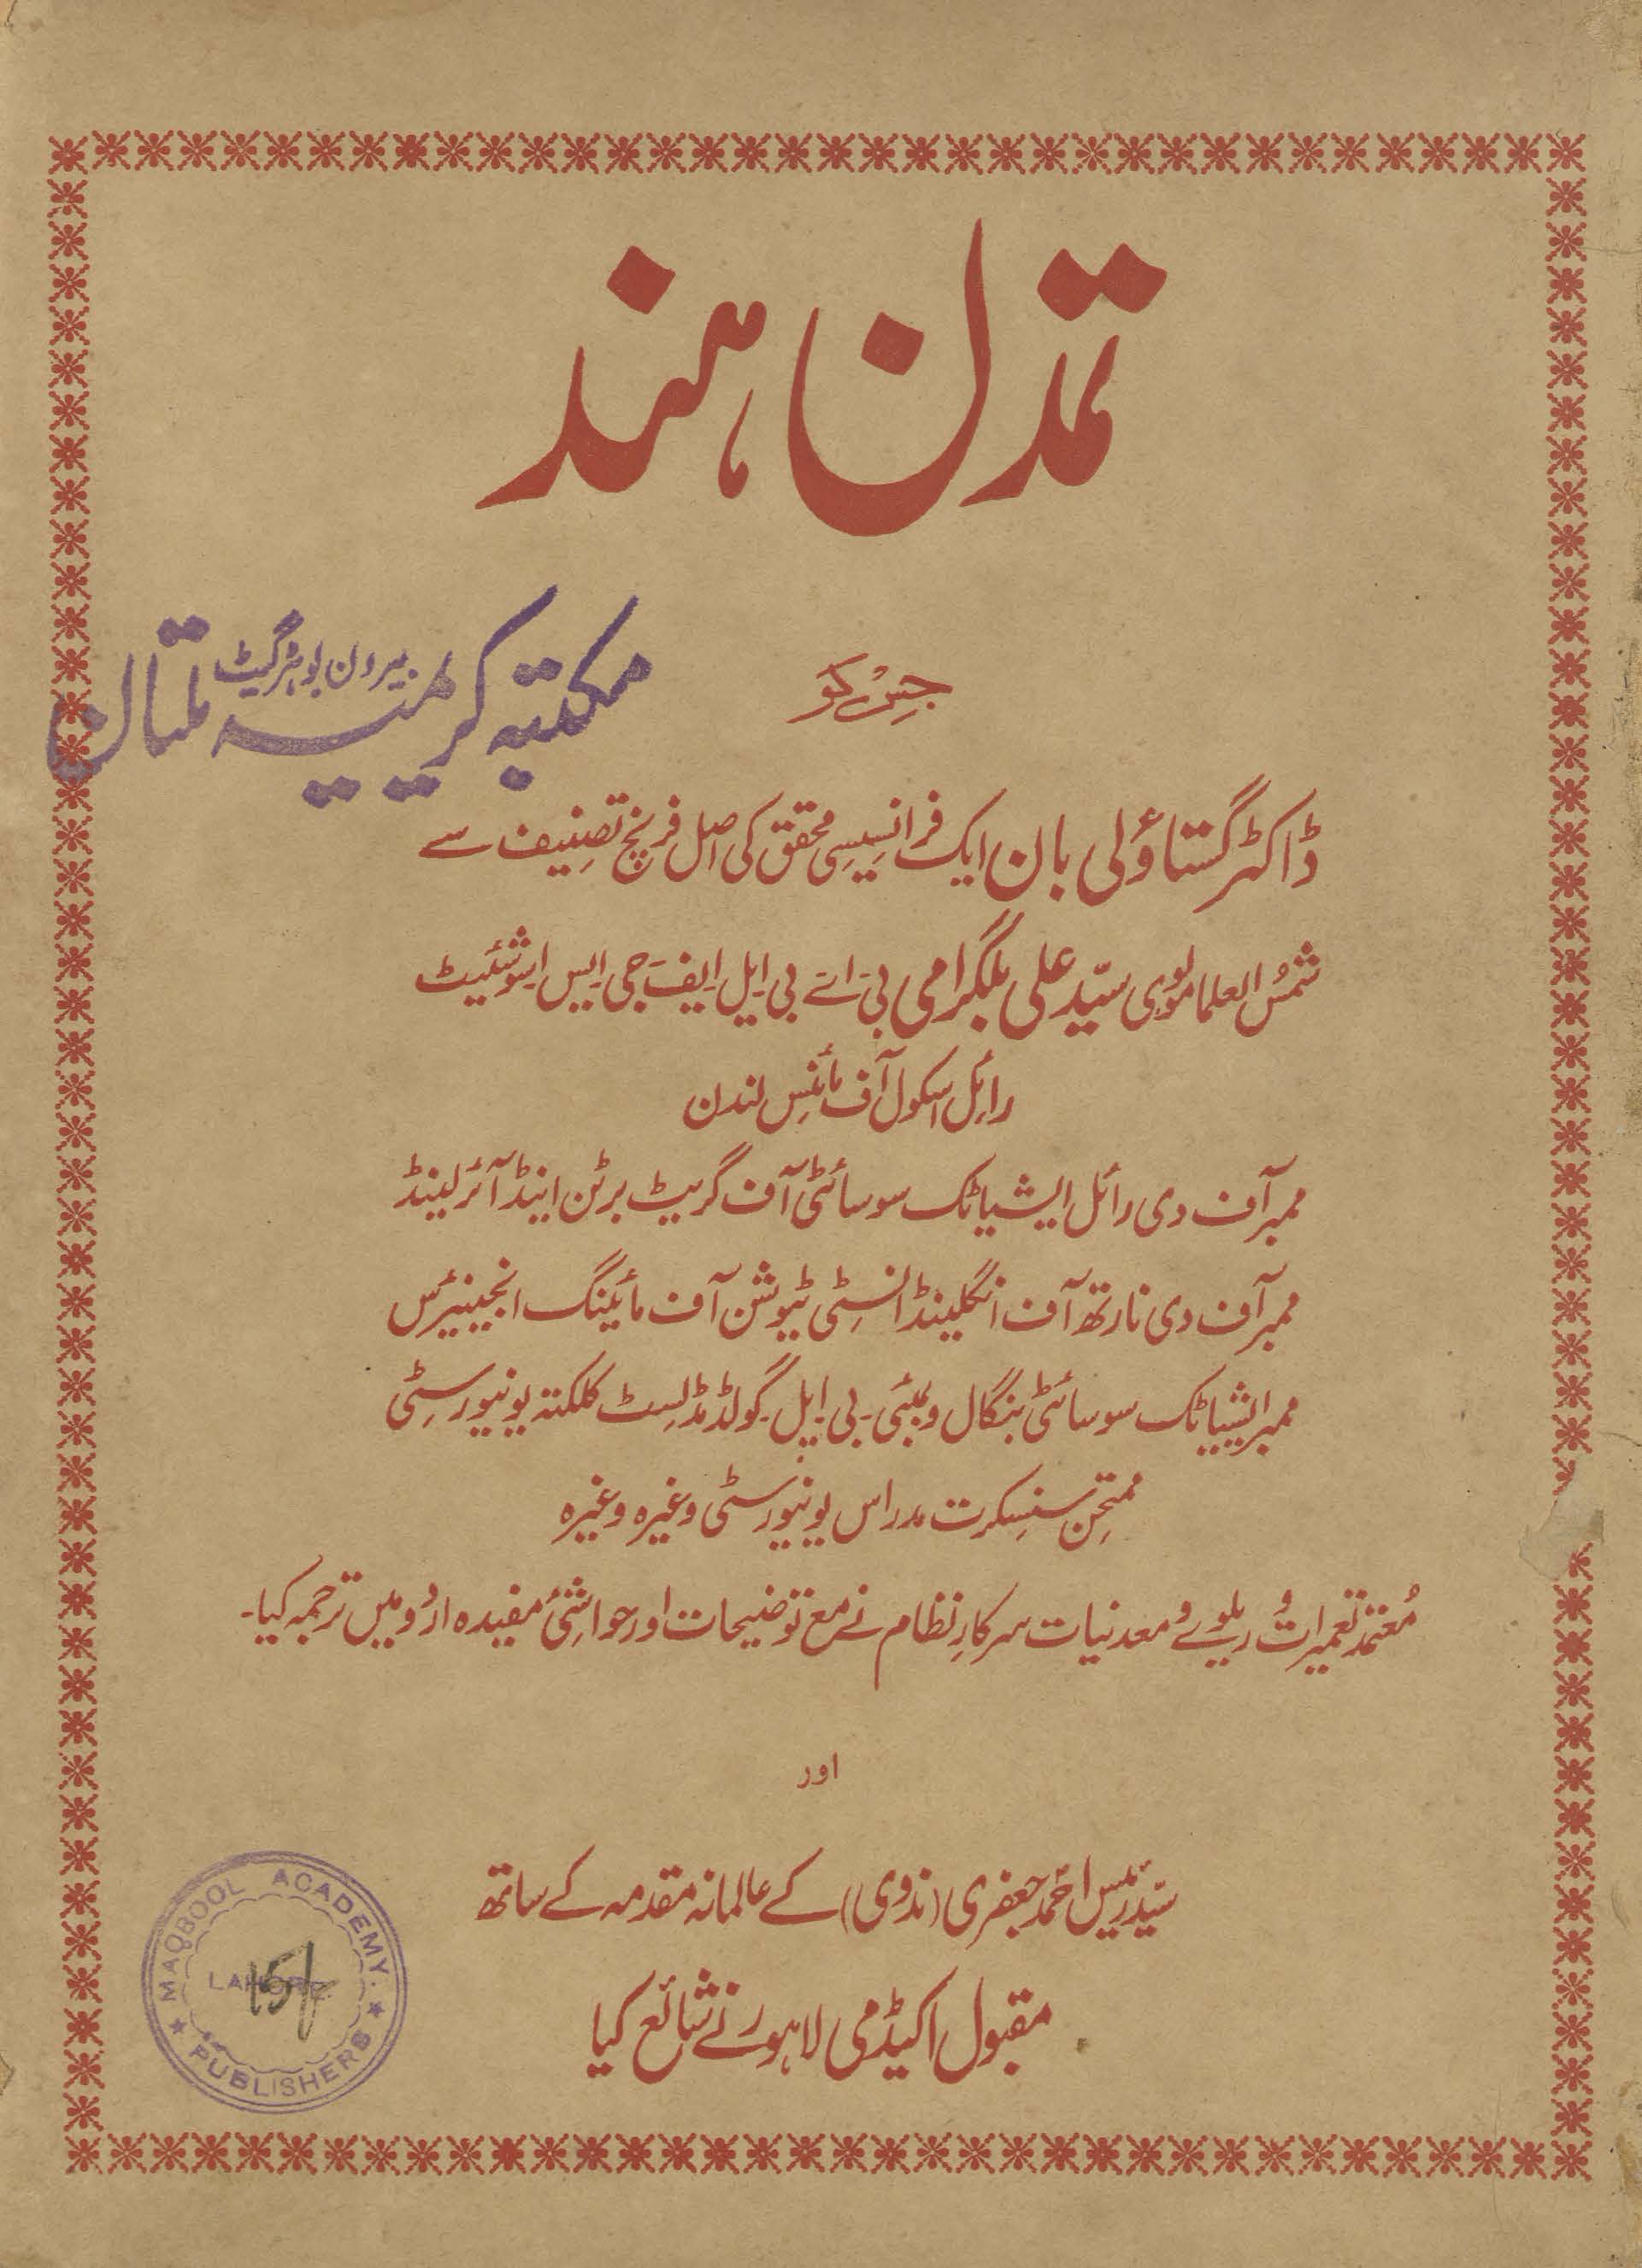 تمدن ہند
مکتبہ کریمیہ بیرون بوہڑ گیٹ ملتان
جس کو
ڈاکٹر گستاؤلی بان ایک فرانسیسی محقق کی اصل فرنچ تصنیف سے
شمس العلما مولوی سید علی بلگرامی بی۔اے بی۔ایل ایف۔جی۔ایس اسوشئیٹ
رائل اسکول آف مائنس لندن
ممبر آف دی رائل ایشیاٹک سوسائٹی آف گریٹ برٹن اینڈ آئرلینڈ
ممبر آف دی نارتھ آف انگلینڈ انسٹی ٹیوشن آف مائینگ انجینیرس
ممبر ایشیاٹک سوسائٹی بنگال و بمبئی۔ بی۔ایل۔ گولڈ مڈلسٹ کلکتہ یونیورسٹی
ممتحن سنسکرت مدراس یونیورسٹی وغیرہ وغیرہ
معتمد تعمیرات و ریلوے و معدنیات سرکار نظام نے مع توضیحات اور حواشئ مفیدہ اردو میں ترجمہ کیا۔
اور
سید رئیس احمد جعفری (ندوی) کے عالمانہ مقدمہ کے ساتھ
مقبول اکیڈمی لاہور نے شائع کیا
MAQBOOL ACADEMY.
LAHORE
15/
★ PUBLISHERS ★